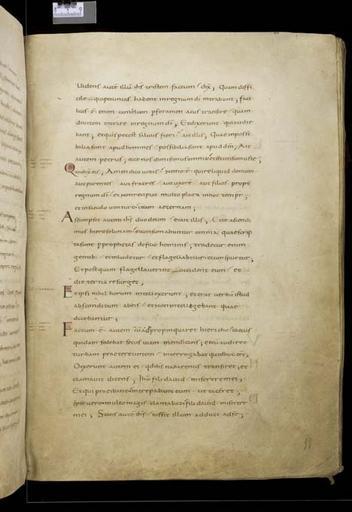 Uidens autē illū ihs tristem factum dix; Quam diffi
cile qui pecunias habent in regnum dī intrabunt; facil
ius ē enim camelum p foramen acus transire quam
diuitem intrare in regnum dī; Et dixerunt qui audie
bant; et quis potest saluus fieri; ait illis; Quae inpossi
bilia sunt apud homines possibilia sunt apud dm; Ait
autem petrus; ecce nos dimisimus omnia et secuti sumus te;
Qui dixit eis; Amen dico uobis nemo ē qui reliquid domum
aut parentes aut fratres aut uxorē aut filios propt
regnum dī et non recipiat multo plura in hoc tempr;
et in saeculo uenturo uitam aeternam;
Assumpsit autem ihs duodecim et ait illis; Ecce ascendi
mus hierosolimam et consummabuntur omnia quae scrip
ta sunt p prophetas de filio hominis; tradetur enim
gentib; et inludetur et flagellabitur et conspuetur;
Et postquam flagellauerint occident eum et
die tertia resurget;
Et ipsi nihil horum intellexerunt; et erat uerbū istud
absconditum ab eis et non intellegebant quae
dicebantur;
Factum ē autem cū adppinquaret hiericho caecus
quidam sedebat secus uiam mendicans; et cū audiret
turbam praetereuntem interrogabat quid hoc eet;
Dixerunt autem ei qd ihs nazarenus transiret; et
clamauit dicens; Ihū fili dauid miserere mei;
Et qui praeibant increpabant eum ut taceret;
Ipse uero multo magis clamabat fili dauid miserere
mei; Stans autē ihs iussit illum adduci ad se;